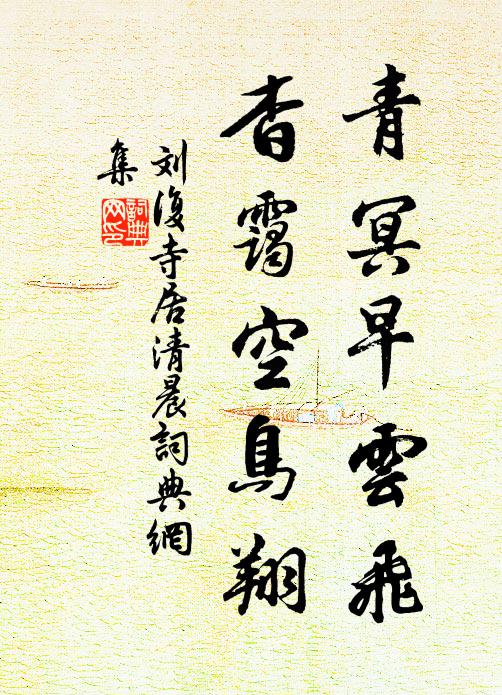 青冥早雲飛
杳靄空鳥翔
刘復寺居清晨詞典網
集
詞典
网印